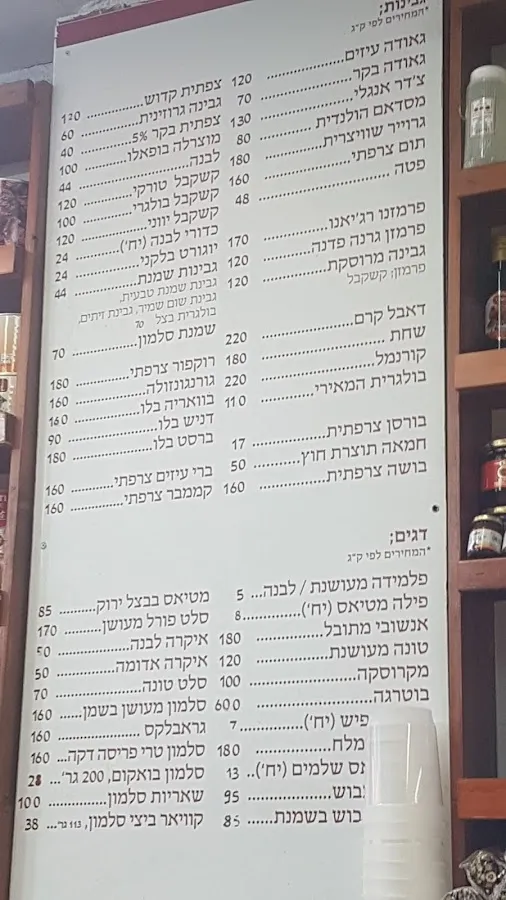 גבינות;
*המחירים לפי ק"ג
גאודה עיזים.................... 120
גאודה בקר.................... 70
צ'דר אנגלי.................... 130
מסדאם הולנדית .............. 80
גרוייר שוויצרית.............. 180
תום צרפתי.................... 160
פטה .......................... 48
פרמזנו רג'יאנו.............. 170
פרמזן גרנה פדנה............ 120
גבינה מרוסקת................ 120
פרמזן; קשקבל
דאבל קרם.................... 220
שחת .......................... 180
קורנמל........................ 220
בולגרית המאירי.............. 110
בורסן צרפתית................ 17
חמאה תוצרת חוץ........... 50
בושה צרפתית................ 160
צפתית קדוש................ 120
גבינה גרוזינית.............. 60
צפתית בקר 5% .............. 40
מוצרלה בופאלו.............. 100
לבנה.......................... 44
קשקבל טורקי................ 120
קשקבל בולגרי.............. 100
קשקבל יווני.................. 120
כדורי לבנה (יח')............ 24
יוגורט בלקני................ 24
גבינות שמנת................ 44
גבינת שמנת טבעית,
גבינת שום שמיר, גבינת זיתים,
בולגרית בצל 70
שמנת סלמון.................. 70
רוקפור צרפתי................ 180
גורגונזולה.................... 160
בוואריה בלו.................. 160
דניש בלו...................... 90
ברסט בלו...................... 180
ברי עיזים צרפתי............ 160
קממבר צרפתי................ 160
דגים;
*המחירים לפי ק"ג
פלמידה מעושנת / לבנה... 5
פילה מטיאס (יח')............ 8
אנשובי מתובל................ 180
טונה מעושנת................ 120
מקרוסקה...................... 100
בוטרגה........................ 600
פיש (יח')................ 7
מלח................ 180
שלמים (יח').. 13
95
בשמנת....... 85
מטיאס בבצל ירוק.......... 85
סלט פורל מעושן............ 170
איקרה לבנה.................. 50
איקרה אדומה................ 50
סלט טונה...................... 70
סלמון מעושן בשמן...... 160
גראבלקס .................... 160
סלמון טרי פריסה דקה... 160
סלמון בואקום, 200 גר'... 28
שאריות סלמון................ 100
קוויאר ביצי סלמון, 113 גר'... 38